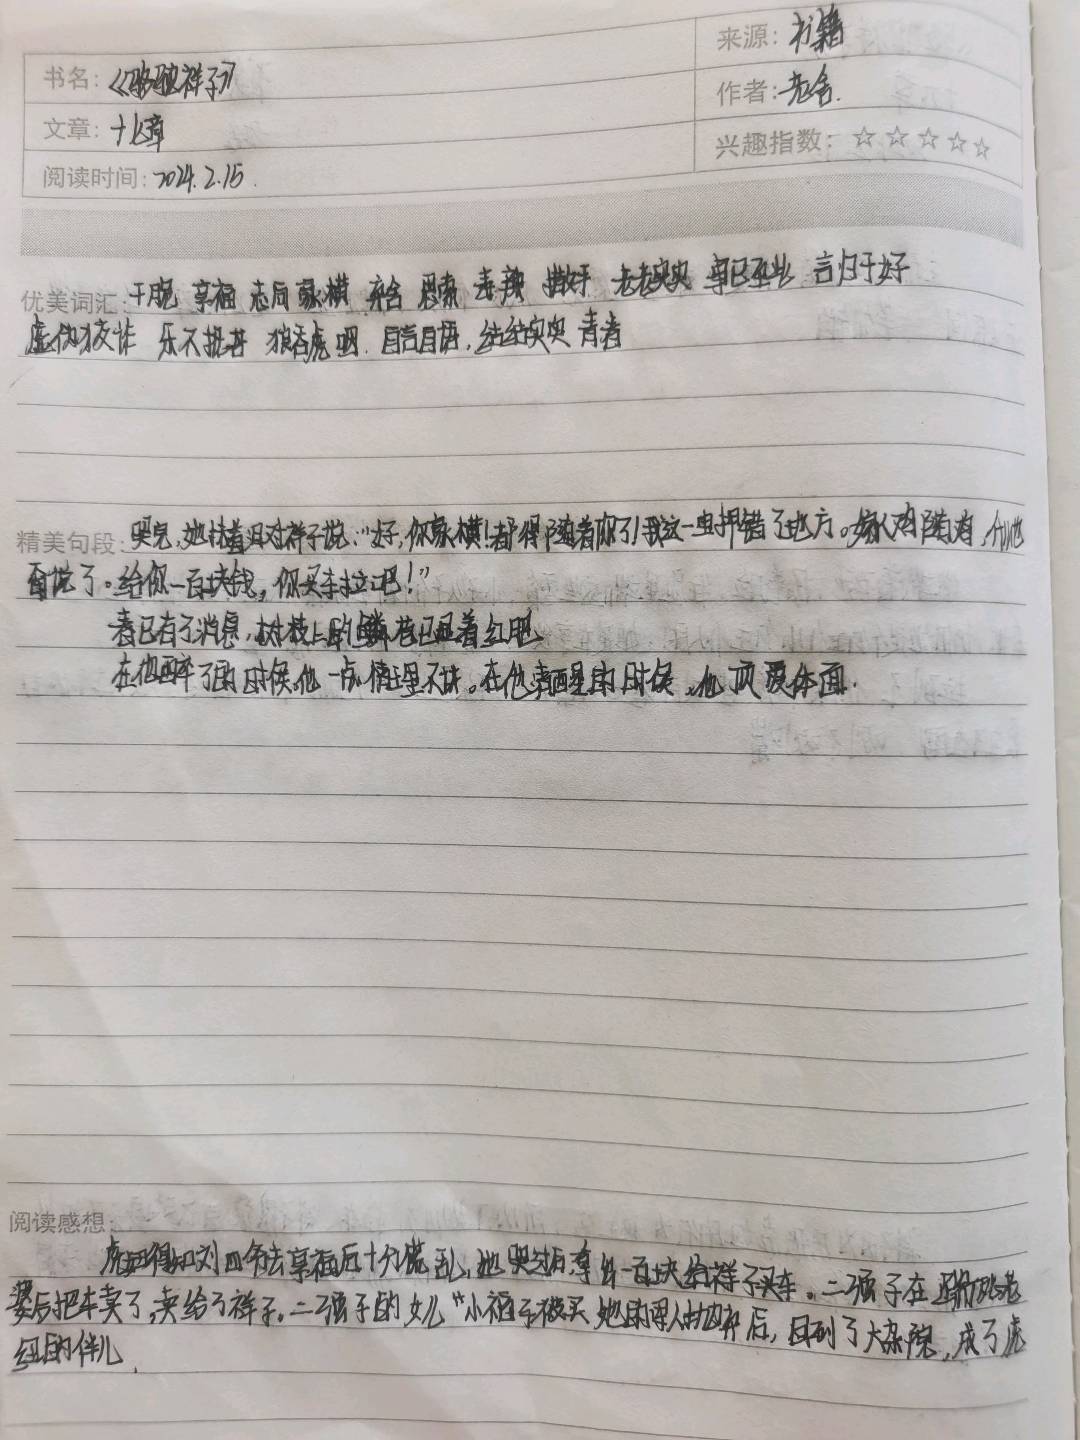 来源：书籍
书名：《骆驼祥子》
作者：老舍.
文章：十七章
兴趣指数：☆☆☆☆☆
阅读时间：2024.2.15.
优美词汇：干脆 享福 志同 豪横 弃舍 思索 毒辣 撒手 老老实实 言归于好
虚伪狡诈 乐不抵苦 狼吞虎咽. 自言自语, 结结实实
精美句段：哭完,她抹着泪对祥子说:“好,你豪横!都得随着你了!我这一宝押错了地方。嫁人鸡随鸡,什么也
甭说了。给你一百块钱,你买车拉吧!”
春已有了消息,树枝上的鳞苞已显着红肥
在他醉了的时候,他一点情理不讲。在他清醒的时候,他顶爱体面.
阅读感想：
虎妞得知刘四爷去享福后十分慌乱,她哭过后,拿出一百块给祥子买车。二强子在
婆后把车卖了,卖给了祥子。二强子的女儿“小福子被买她的男人抛弃后,回到了大杂院,成了虎
妞的伴儿.